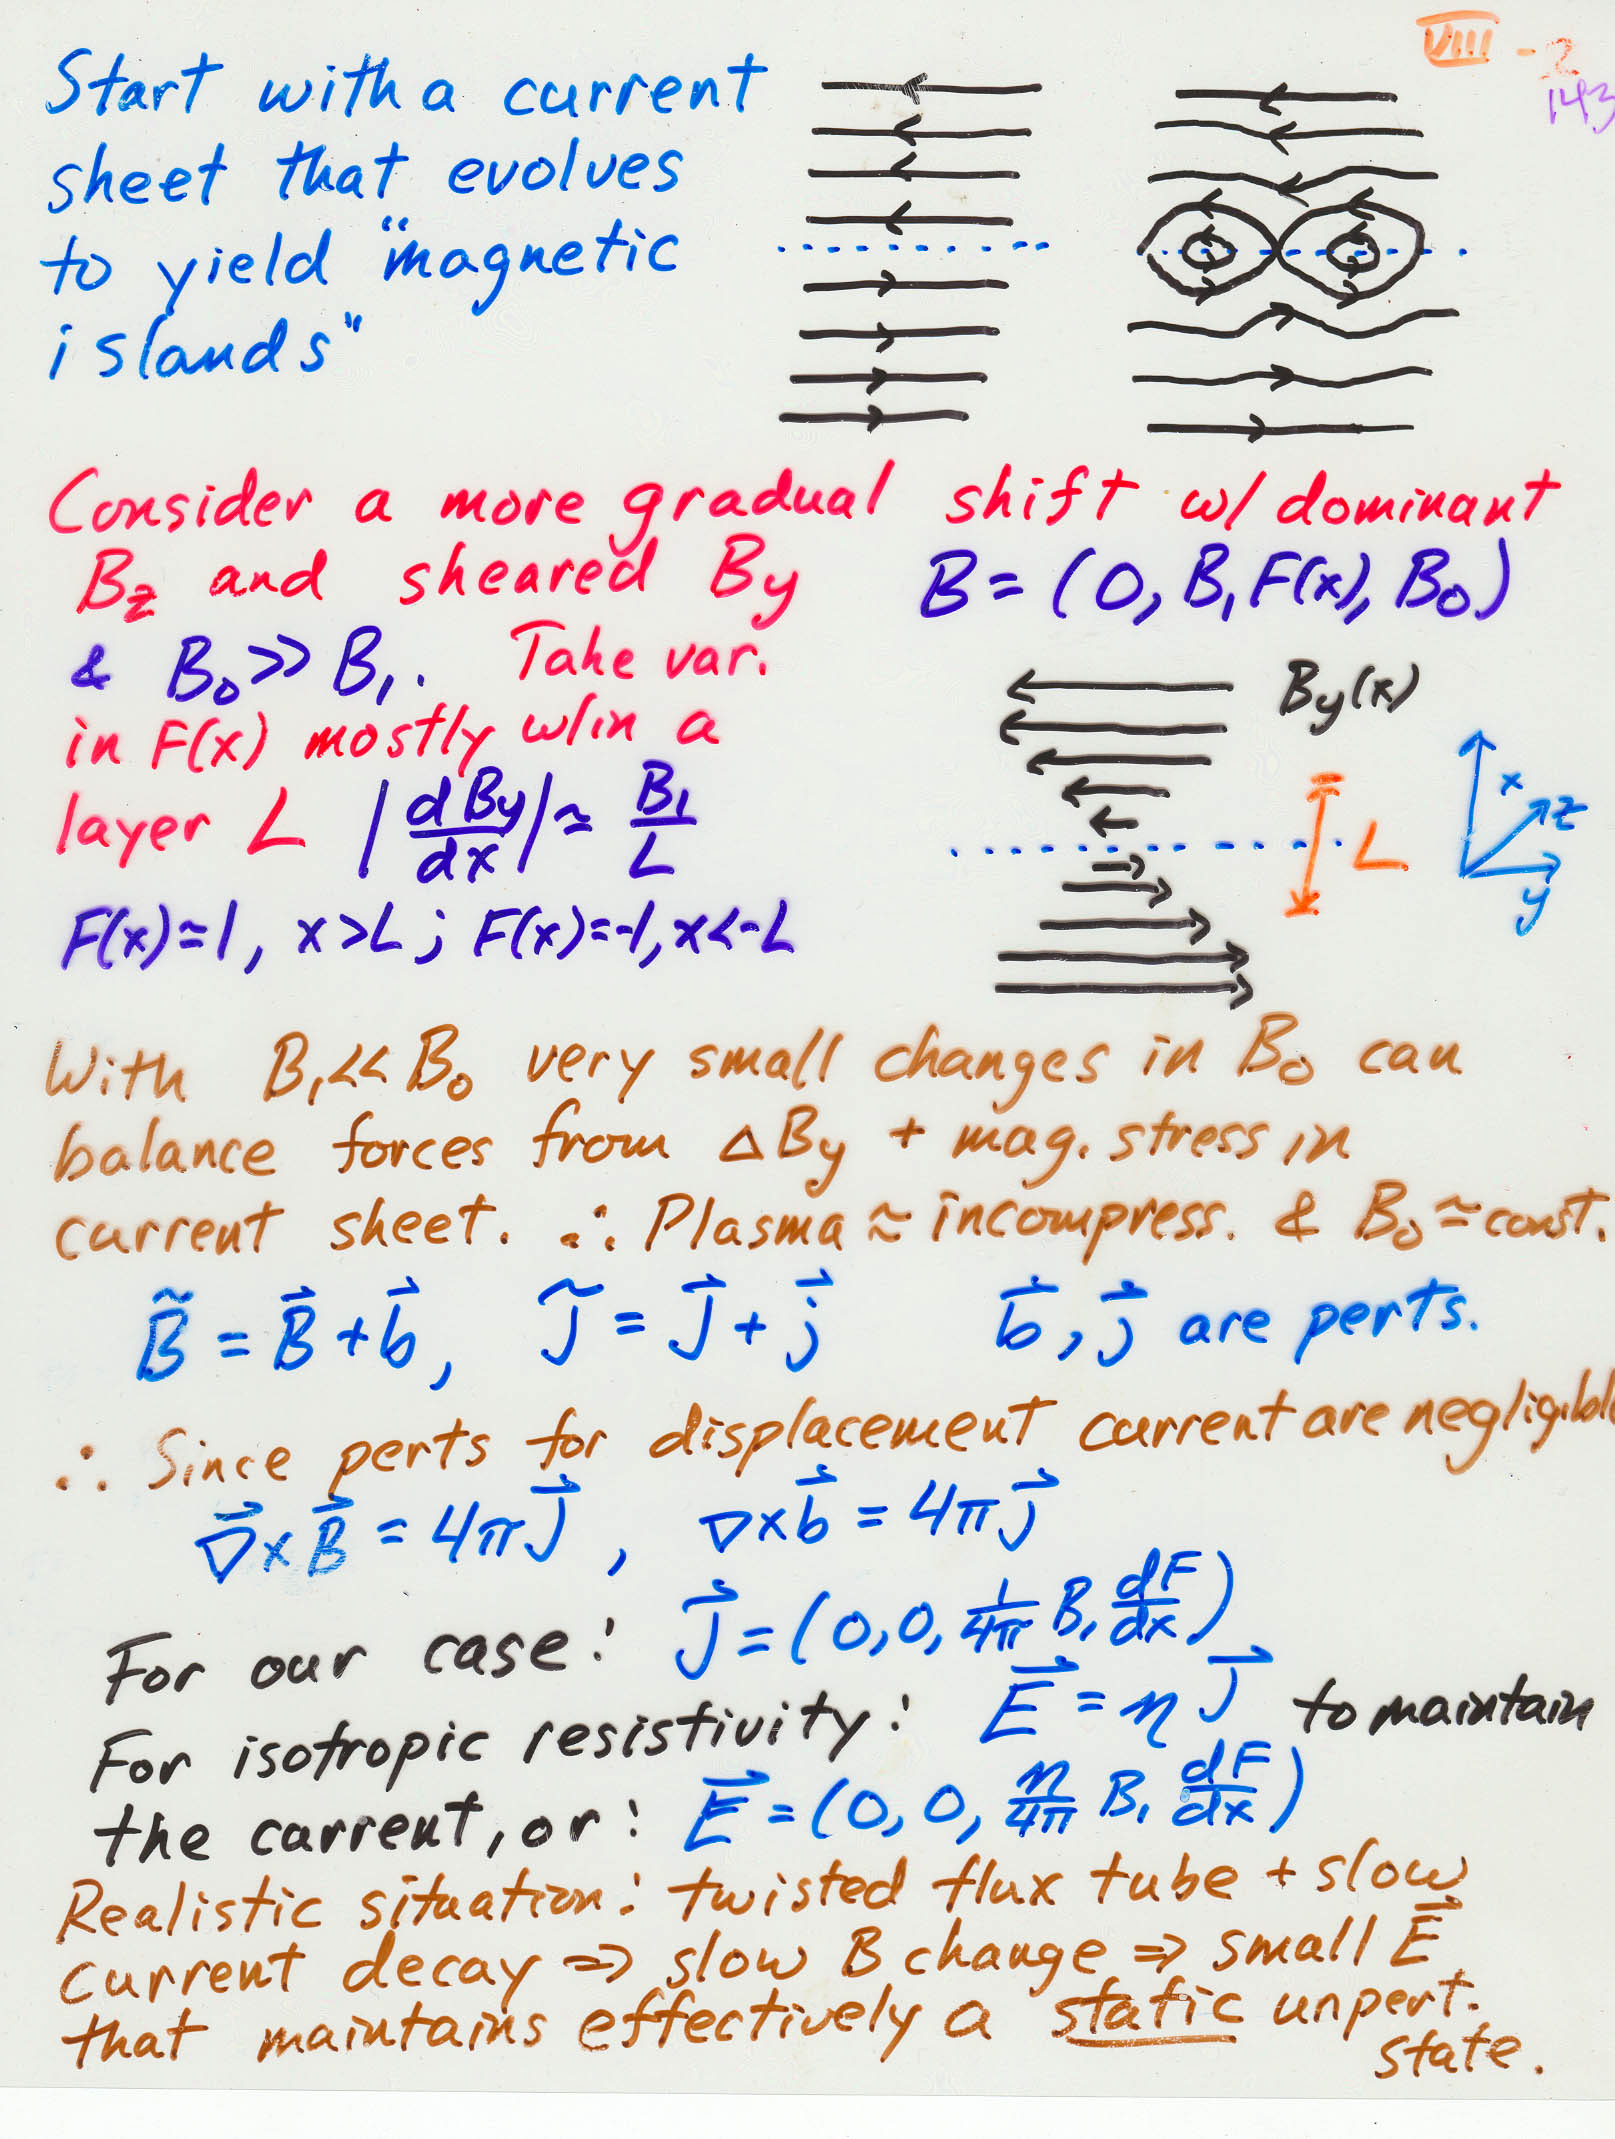 VIII - 2
143
Start with a current
sheet that evolves
to yield "magnetic
islands"
Consider a more gradual shift w/ dominant
Bz and sheared By B = (0, B₁F(x), B₀)
& B₀ >> B₁. Take var.
in F(x) mostly w/in a
layer L |dBy/dx| ≃ B₁/L
F(x)≃1, x>L ; F(x)=-1, x<-L
By(x)
x
z
L
y
With B₁<<B₀ very small changes in B₀ can
balance forces from ΔBy + mag. stress in
current sheet. ∴ Plasma ≈ incompress. & B₀ ≃ const.
B̃ = B⃗ + b⃗, J̃ = J⃗ + j⃗ b⃗, j⃗ are perts.
∴ Since perts for displacement current are negligible
∇⃗×B⃗ = 4πJ⃗, ∇×b⃗ = 4πj⃗
For our case: J⃗ = (0,0, 1/4π B₁ dF/dx)
For isotropic resistivity: E⃗ = ηJ⃗ to maintain
the current, or: E⃗ = (0, 0, η/4π B₁ dF/dx)
Realistic situation: twisted flux tube + slow
current decay ⇒ slow B change ⇒ small E⃗
that maintains effectively a static unpert.
state.